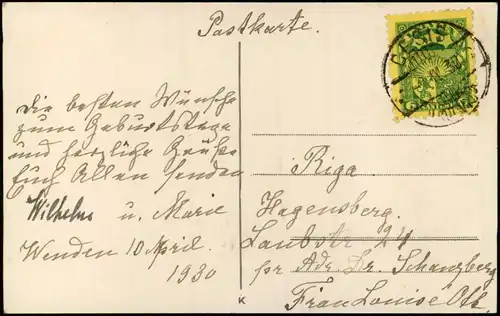 Postkarte.
CESIS
Die besten Wünsche
zum Geburtstage
und herzliche Grüße
Euch Allen senden
Wilhelm u. Marie
Wenden 10 April.
1930
Riga
Hagensberg.
Laubstr 24
pr Adr. Dr. Schanzberg
Frau Louise Ott.
K